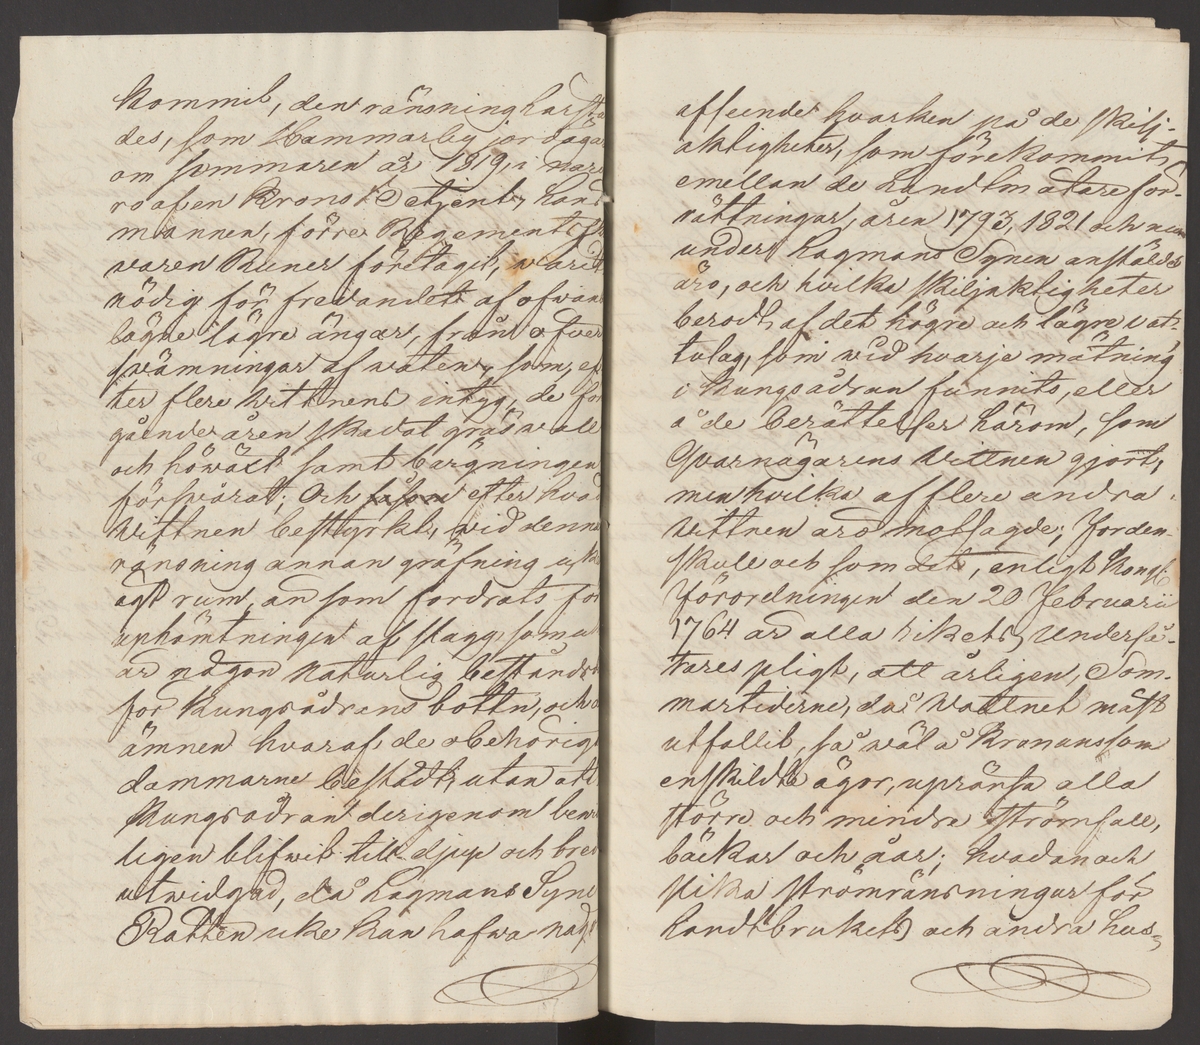 Kommit, den ränsning harsta
des, som Hammarby jordäga
om sommaren år 1819, i närva
ro af en Krono Betjent, Länd
mannen, förre Regements Skri
varen Runer företagit, warit
nödig för fredandet af ofwan
lägne lägre ängar, från öfwer
svämningar af vaten, som, ef
ter flere wittnens intyg, de för
gående åren skadat gräsvall
och höwäxt samt bärgningen
försvårat; Och efter hvad
Vittnen bestyrkt, vid denna
ränsning annan gräfning icke
ägt rum, än som fordrats för
uphämtningen af slagg, som ei
är någon naturlig beståndsd
för Kungsådrans botten, och
ämnen hvaraf de obehörige
dammarne bestådt, utan att
Kungsådran derigenom ben
ligen blifwit till djup och bred
utwidgad, då Lagmans Syne
Rätten icke kan hafwa någ
afseende hvarken på de skilj-
aktigheter, som förekommit
emellan de Landtmätare för-
rättningar, åren 1793, 1821 och nu
under Lagmans Synen anstälde
äro, och hvilka skiljaktigheter
berodt af det högre och lägre vat-
tulag, som wid hvarje mätning
i Kungsådran funnits, eller
å de berättelser härom, som
Qvarnägarens Vittnen gjort,
men hvilka af flere andra
vittnen äro motsagde; Jorden-
skull och som det, enligt Kongl.
Förordningen den 20 Februarii
1764 är alla rikets Underså-
tares pligt, att årligen, Som-
martiderne, då Vattnet mäst
utfallit, så wäl å Kronans som
enskildte ägor, uprånsa alla
större och mindre strömfall,
bäckar och åar; hvadan och
slika strömränsningar för
Landtbrukets och andra hus-